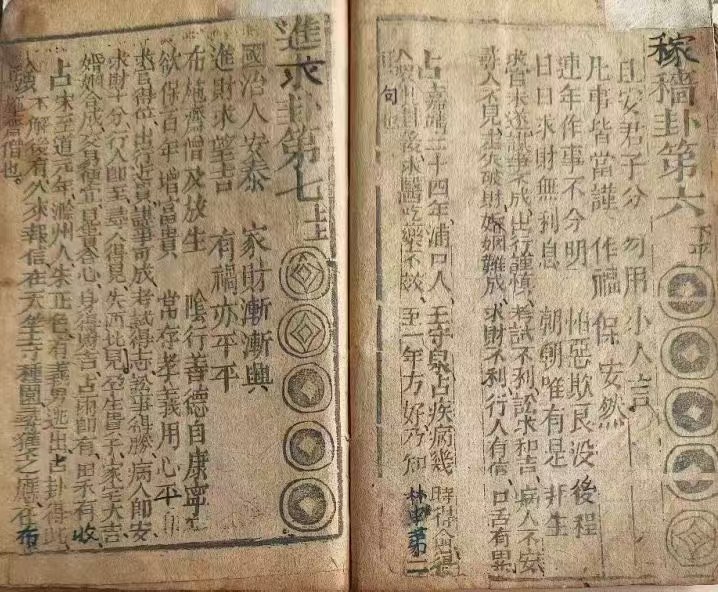 稼穡卦第六 下平
且安君子分 勿用小人言
凡事皆當謹 作福保安然
連年作事不分明 怕惡欺良没後程
日日求財無利息 朝朝唯有是非生
求官未遂 謀事不成 出行謹慎 考試不利 訟求和吉 病人不安
尋人不見 生失破財 婚姻難成 求財不利 行人有信 口舌有異
占嘉靖三十四年、浦口人、王守泉占疾病幾時得
人 後求醫吃藥不效、至 年方好 知 林中第二
句
進求卦第七 上上
國治人安泰 家財漸漸興
進財求望吉 有禍亦平平
布施齋僧及放生 陰行善德自康寧
欲保百年增富貴 常存孝義用心平
求官得位、出行近貴、謀事可成、考試得志、訟事得勝、病人即安、
求財十分、行人即至、尋人得見、失西北見、六甲生貴子、家宅大吉
婚姻合成、交易 宜、買賣合心、身 吉、占雨即有、田禾有收、
占宋至道元年、滁州人朱正色有義男逃出占卦得此、
不解後有人來報信在天 寺種園 之應在布
施齋僧也。